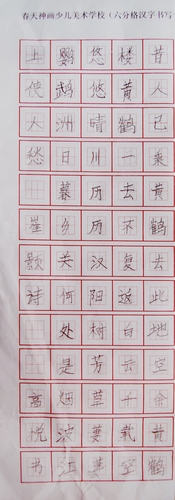 春天神画少儿美术学校(六分格汉字书写
昔人已乘黄鹤去此地空余黄鹤
楼黄鹤一去不复返白云千载空
悠悠晴川历历汉阳树芳草萋萋
鹦鹉洲日暮乡关何处是烟波江
上使人愁 崔题诗 高悦书